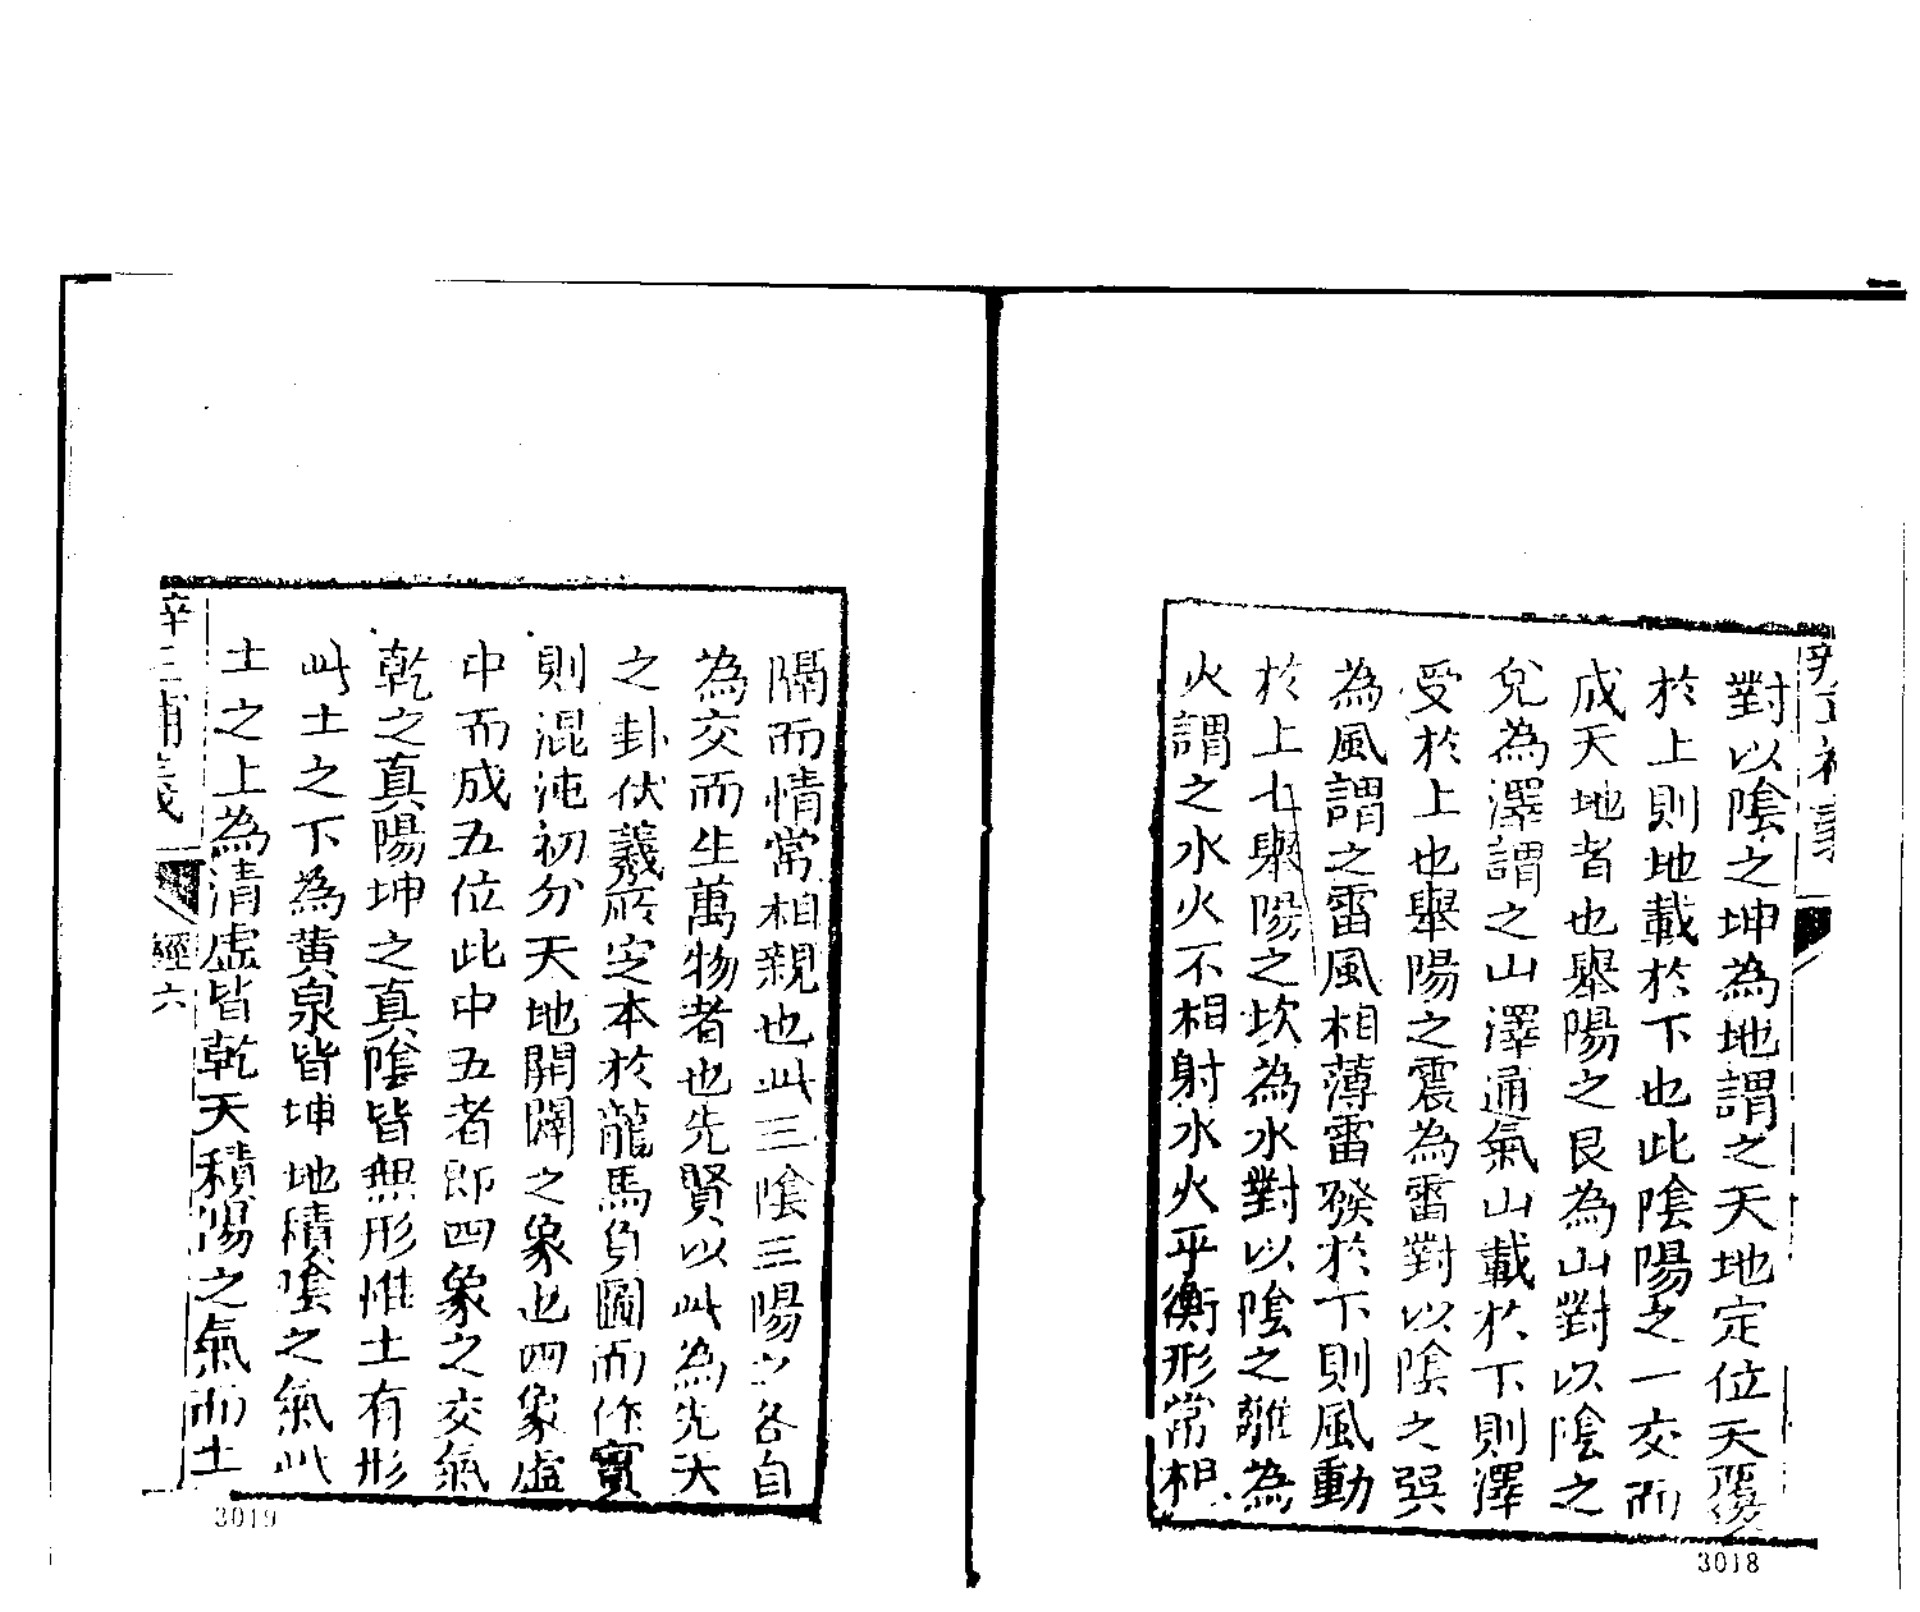 對以陰之坤為地謂之天地定位天覆
於上則地載於下也此陰陽之一交而
成天地者也舉陽之艮為山對以陰之
兌為澤謂之山澤通氣山載於下則澤
受於上也舉陽之震為雷對以陰之巽
為風謂之雷風相薄雷發於下則風動
於上也舉陽之坎為水對以陰之離為
火謂之水火不相射水火平衡形常相
3018
隔而情常相親也此三陰三陽之各自
為交而生萬物者也先賢以此為先天
之卦伏羲所定本於龍馬負圖而作實
則混沌初分天地開闢之象也四象虛
中而成五位此中五者即四象之交氣
乾之真陽坤之真陰皆無形惟土有形
此土之下為黃泉皆坤地積陰之氣此
土之上為清虛皆乾天積陽之氣而土
經六
3019